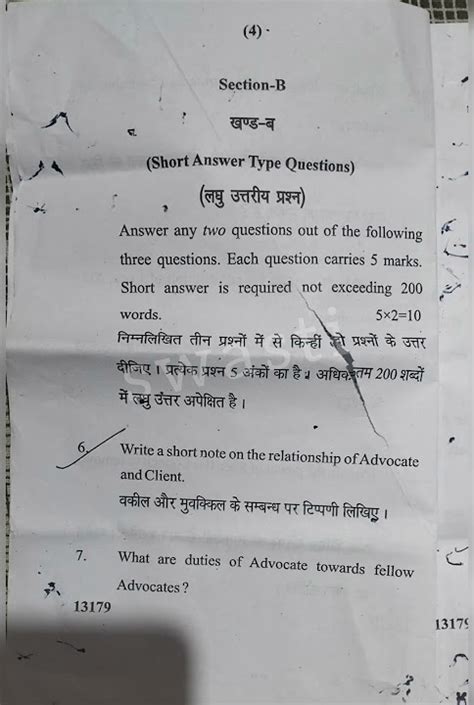 (4)
Section-B
खण्ड-ब
(Short Answer Type Questions)
(लघु उत्तरीय प्रश्न)
Answer any two questions out of the following
three questions. Each question carries 5 marks.
Short answer is required not exceeding 200
words. 5×2=10
निम्नलिखित तीन प्रश्नों में से किन्हीं दो प्रश्नों के उत्तर
दीजिए। प्रत्येक प्रश्न 5 अंकों का है। अधिकतम 200 शब्दों
में लघु उत्तर अपेक्षित है।
swasti
6. Write a short note on the relationship of Advocate
and Client.
वकील और मुवक्किल के सम्बन्ध पर टिप्पणी लिखिए।
7. What are duties of Advocate towards fellow
Advocates?
13179